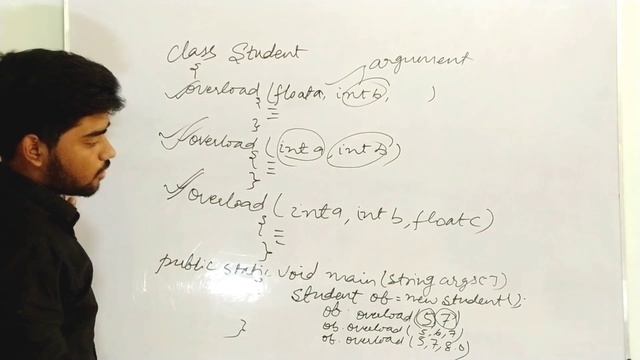 class Student
{
argument
overload (float a, int b, )
{
}
overload (int a, int b)
{
}
overload (int a, int b, float c)
{
}
public static void main (String args[])
Student of = new student();
of overload (5, 7)
of. overload (5, 6, 7)
of. overload (5, 7, 8.0)
}